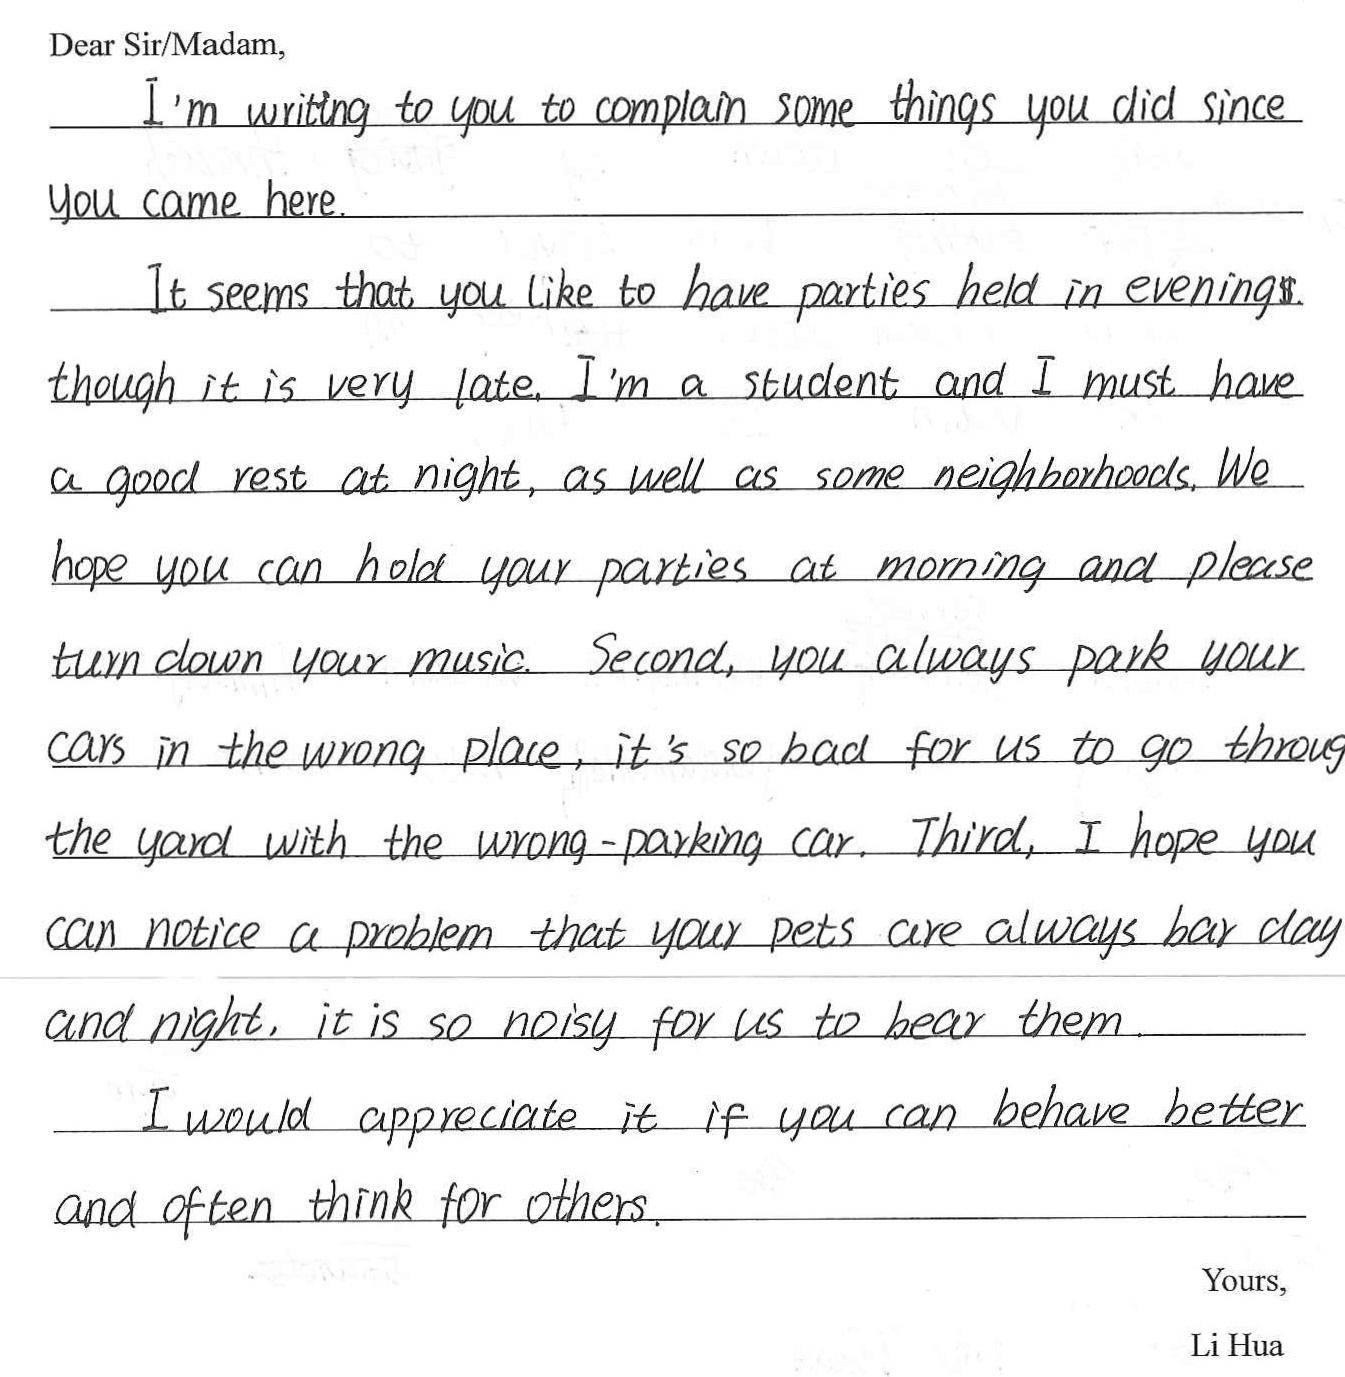 Dear Sir/Madam,
I'm writing to you to complain some things you did since
you came here.
It seems that you like to have parties held in evenings.
though it is very late. I'm a student and I must have
a good rest at night, as well as some neighborhoods. We
hope you can hold your parties at morning and please
turn down your music. Second, you always park your
cars in the wrong place, it's so bad for us to go throug
the yard with the wrong-parking car. Third, I hope you
can notice a problem that your pets are always bar day
and night. it is so noisy for us to bear them.
I would appreciate it if you can behave better
and often think for others.
Yours,
Li Hua